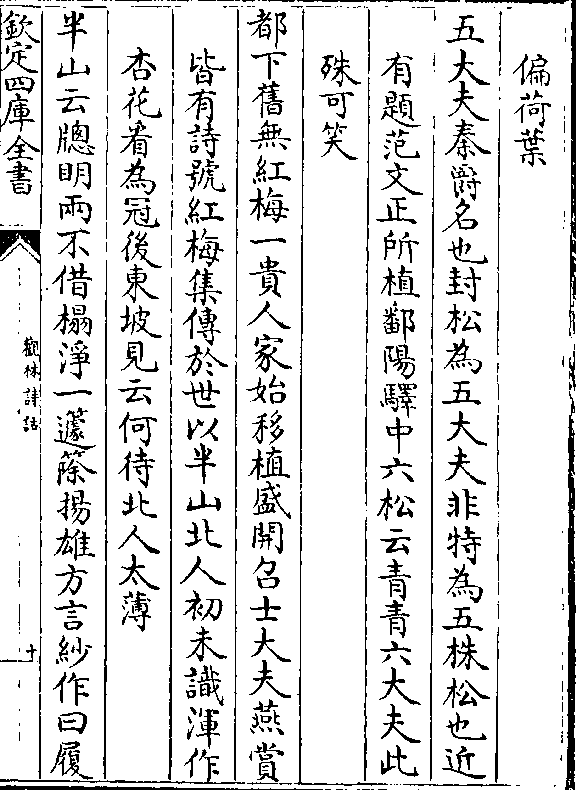 偏荷葉
五大夫秦爵名也封松為五大夫非特為五株松也近
有題范文正所植鄱陽驛中六松云青青六大夫此
殊可笑
都下舊無紅梅一貴人家始移植盛開召士大夫燕賞
皆有詩號紅梅集傳於世以半山北人初未識渾作
杏花看為冠後東坡見云何待北人太薄
半山云牕明兩不借榻淨一籧篨揚雄方言紗作曰履
欽定四庫全書
觀林詩話
十